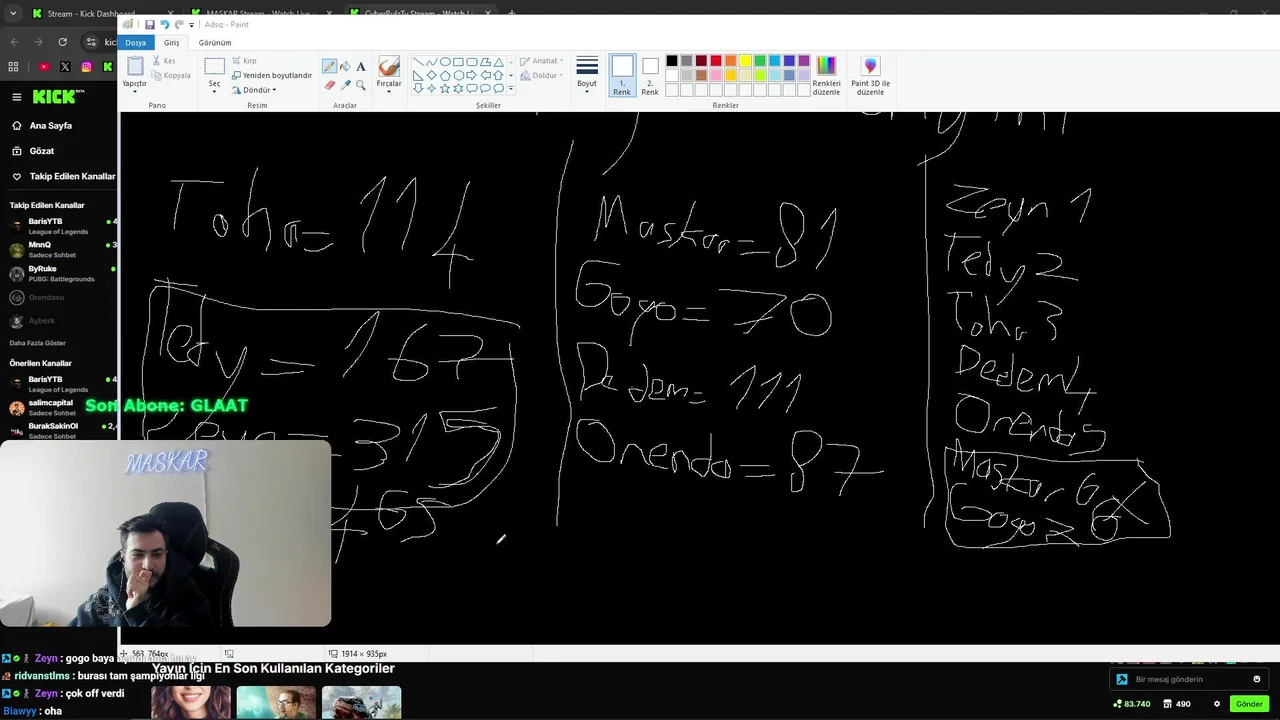 Stream - Kick Dashboard
MASKAR Stream - Watch Live
CyberRulzTv Stream - Watch Li
Adsız - Paint
Dosya
Giriş
Görünüm
Yapıştır
Kes
Kopyala
Pano
Seç
Kırp
Yeniden boyutlandır
Döndür
Resim
Araçlar
Fırçalar
Şekiller
Anahat
Doldur
Boyut
1. Renk
2. Renk
Renkleri düzenle
Renkler
Paint 3D ile düzenle
KICK BETA
Ana Sayfa
Gözat
Takip Edilen Kanallar
Takip Edilen Kanallar
BarisYTB 4
League of Legends
MnnQ 3
Sadece Sohbet
ByRuke
PUBG: Battlegrounds
Orendasu
Ayberk
Daha Fazla Göster
Önerilen Kanallar
BarisYTB 4
League of Legends
salimcapital 4
Sadece Sohbet
BurakSakinOl 2,4
Sadece Sohbet
Son Abone: GLAAT
MASKAR
Toha= 114
Tedy = 167
= 315
Maskar= 81
Gogo= 70
Dedem= 111
Orenda= 87
Zeyn 1
Tedy 2
Toha 3
Dedem 4
Orenda 5
Maskar 6
Gogo
563, 764px
1914 × 935px
Zeyn : gogo baya
ridvanstlms : burası tam şampiyonlar ligi
Zeyn : çok off verdi
Biawyy : oha
Yayın İçin En Son Kullanılan Kategoriler
Bir mesaj gönderin
83.740
490
Gönder